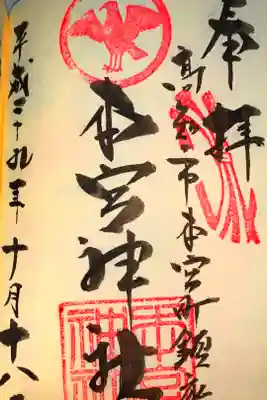 奉拝
高松市本宮町鎮座
本宮神社
平成二十九年十月十八日